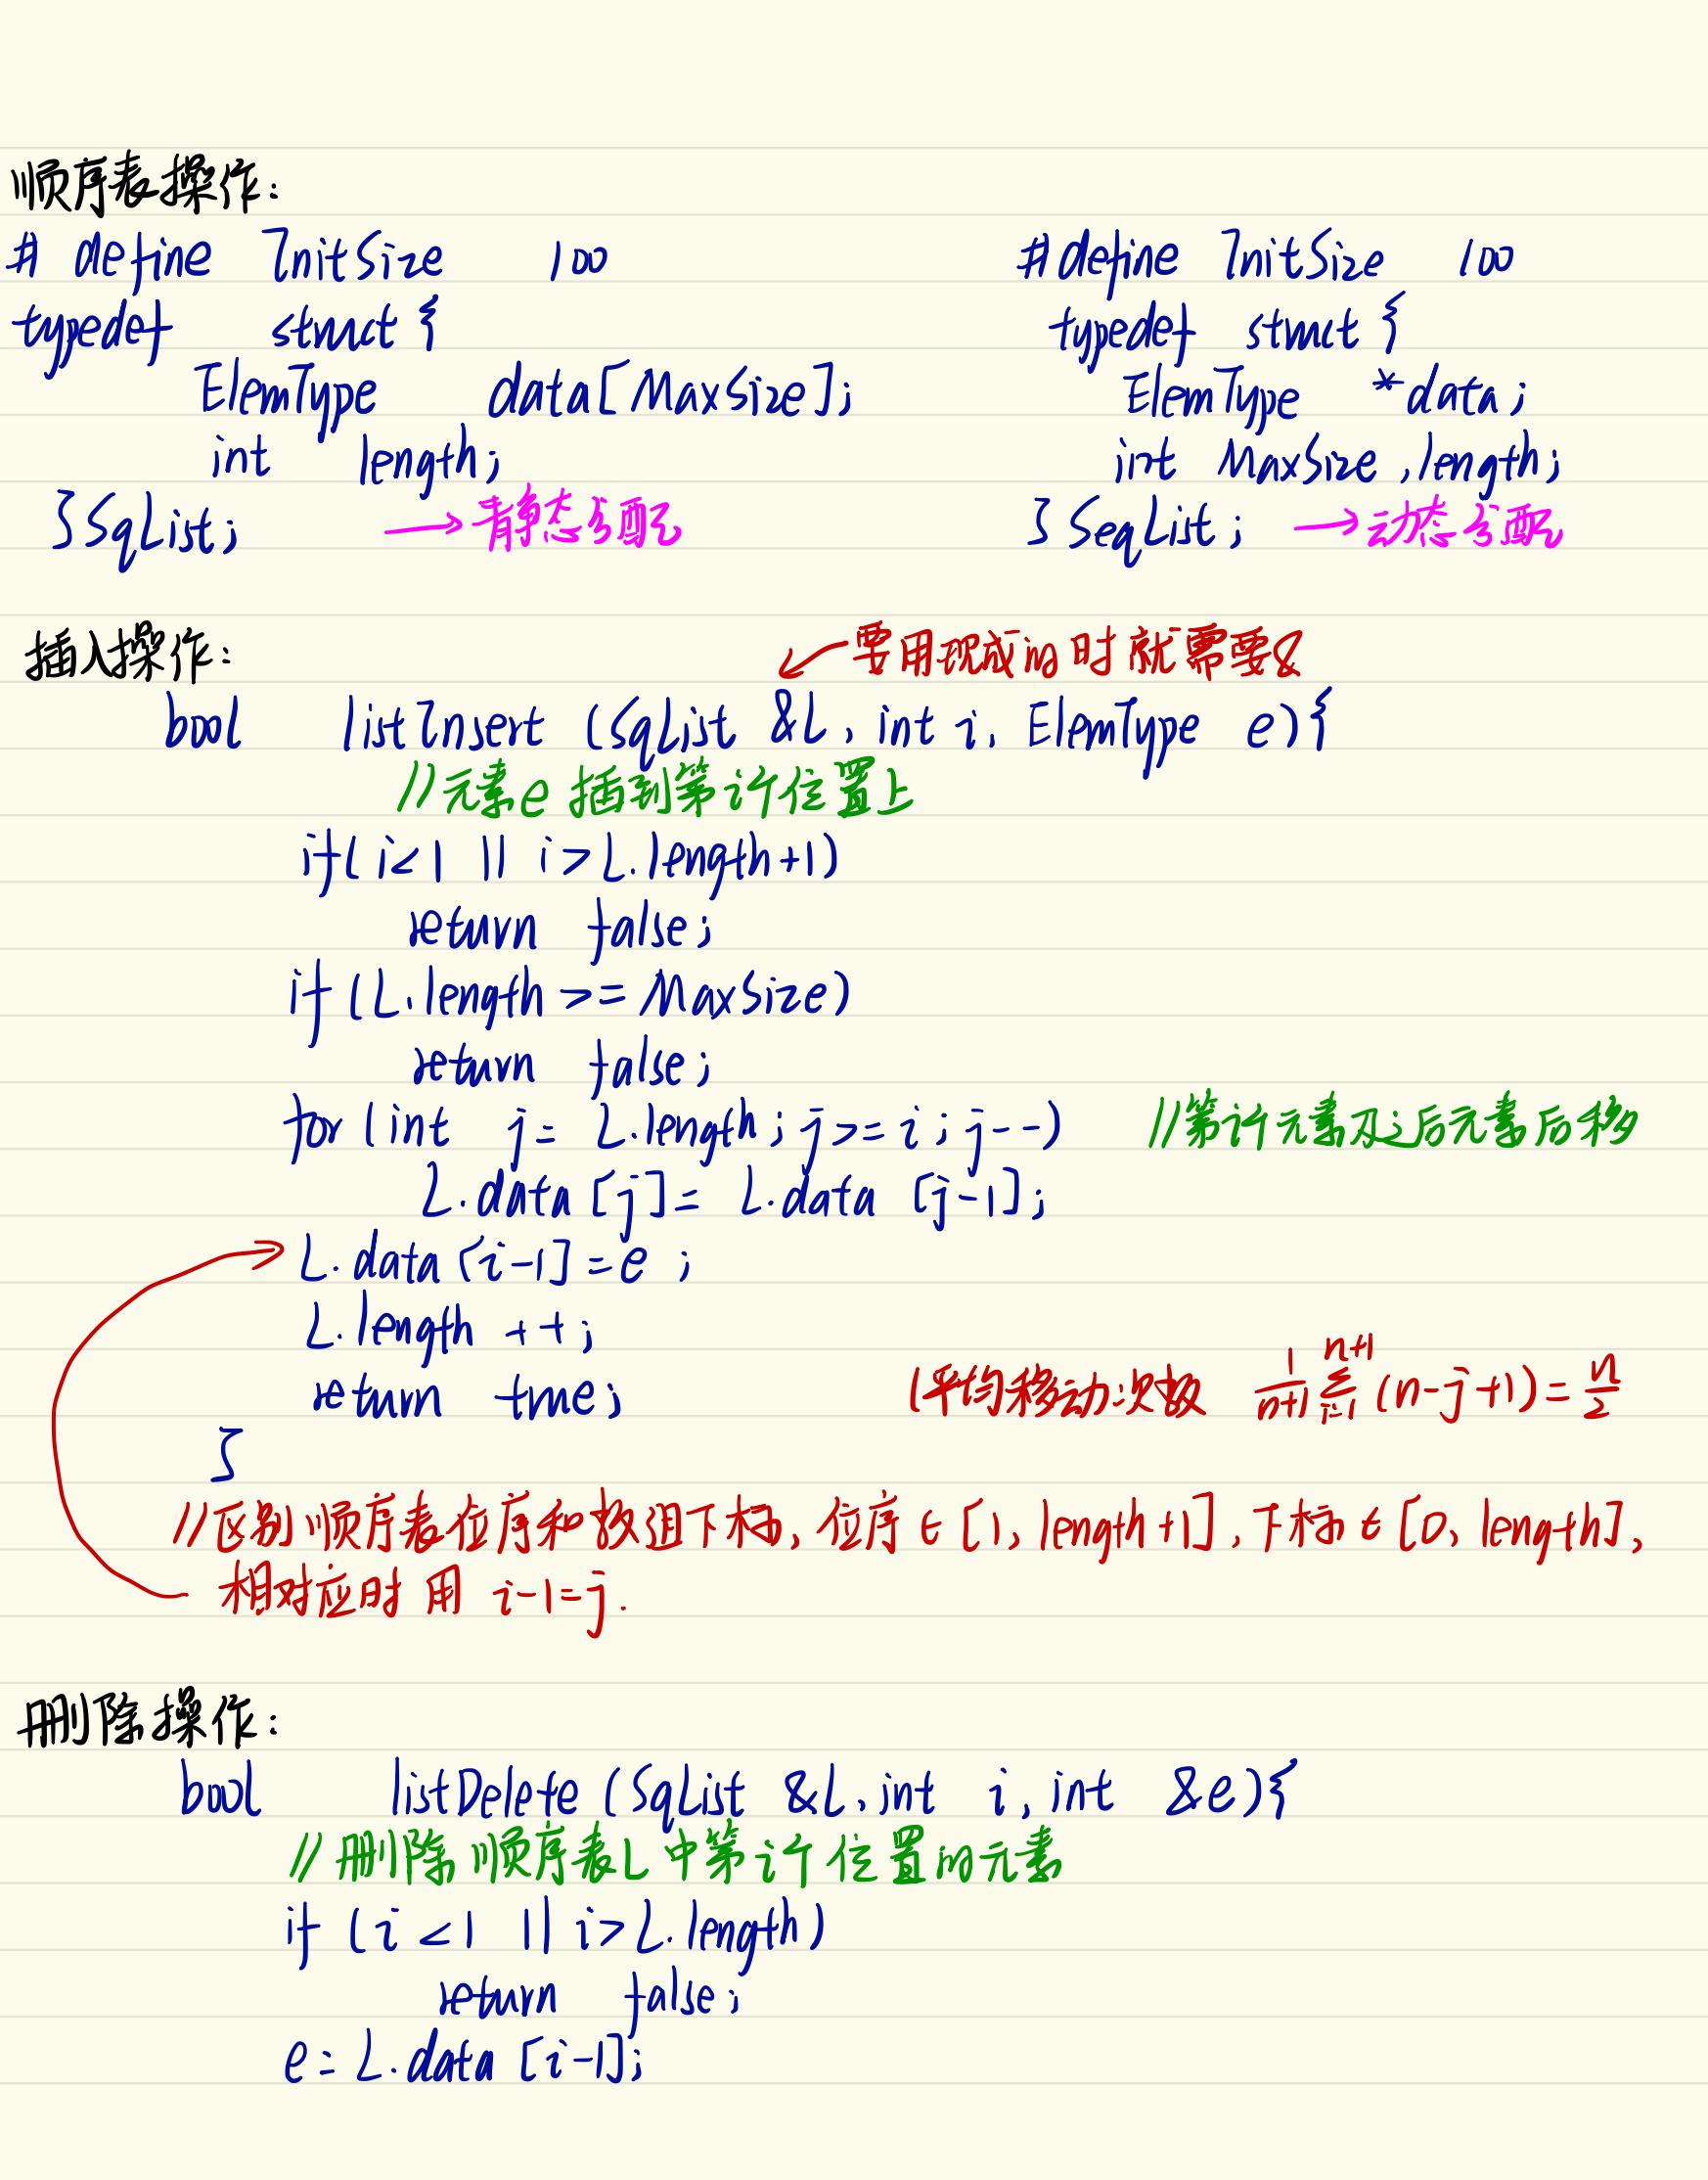 顺序表操作:
# define InitSize 100
typedef struct {
ElemType data[MaxSize];
int length;
}SqList; →静态分配
#define InitSize 100
typedef struct {
ElemType *data;
int MaxSize,length;
} SeqList; →动态分配
插入操作:
要用现成的时就需要&
bool listInsert (SqList &L, int i, ElemType e){
//元素e插到第i个位置上
if( i<1 || i>L.length+1)
return false;
if (L.length >= MaxSize)
return false;
for (int j= L.length; j>=i; j--) //第i个元素及之后元素后移
L.data [j]= L.data [j-1];
L.data [i-1]=e ;
L.length ++;
return true;
(平均移动次数 1/(n+1) Σ_{i=1}^{n+1} (n-j+1)=n/2
}
//区别顺序表位序和数组下标, 位序∈[1, length+1], 下标∈[0, length],
相对应时用 i-1=j.
删除操作:
bool listDelete (SqList &L,int i, int &e){
//删除顺序表L中第i个位置的元素
if (i <1 || i>L.length)
return false;
e= L.data [i-1];